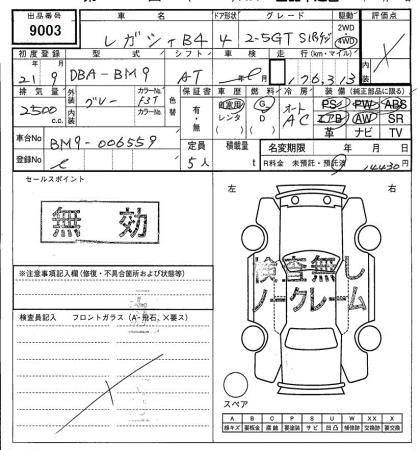 出品番号 車名 ドア形状 グレード 駆動 評価点
9003 レガシィB4 4 2-5GT SIパケ 2WD 4WD
初度登録 型式 シフト 車検 走行(km・マイル)
21年9月 DBA-BM9 AT 年 月 176,313
排気量 外装 カラーNo. 色替 保証書 車歴 燃料 冷房 装備(純正部品に限る)
2500c.c. グレー F3T 有・無 自家用 G オート PS PW ABS
内装 カラーNo. レンタ D AC エアB AW SR
( ) ( ) 革 ナビ TV
車台No BM9-006559 定員 積載量 名変期限 年 月 日
登録No 5人 t R料金 未預託・預託済 14430円
セールスポイント
無効
左 右
※注意事項記入欄(修復・不具合箇所および状態等)
検査無し
ノークレーム
検査員記入 フロントガラス(A-飛石、×要ス)
スペア
A B C P S U W XX X
線キズ 要板金 腐蝕 要塗装 サビ 凹凸 補修跡 交換跡 要交換